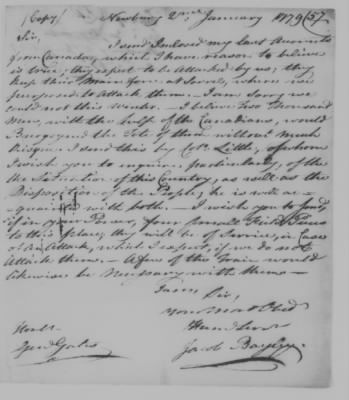 (Copy) Newbury 2nd January 1779 (57
Sir,
I send Inclosed my last Accounts
from Canada, which I have reason to believe
is true; they expect to be Attacked by us; they
keep their Main force at Sorrel, where we
purposed to Attack them. I am sorry we
could not this Winter. I believe two thousand
Men, with the help of the Canadians, would
the of them without much
Risque. I send this by Colo. Little, of whom
I wish you to enquire, particularly, of the
the Situation of this Country, as well as the
Disposition of the People; he is well ac-
quainted with both. I wish you to send,
if in your Power, four small Field Pieces
to this place; they will be of Service, in Case
of an Attack, which I expect, if we do not
Attack them. A few of the Train would
likewise be Necessary with them
I am Sir,
Your Most Obed
Hum Serv
Jacob Bayley
Honble
Genl Gates